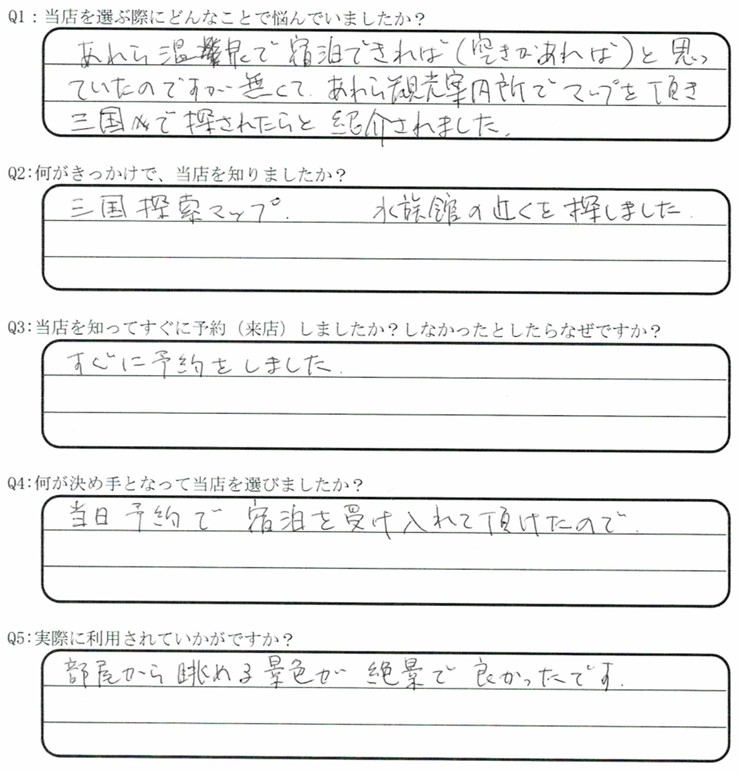 Q1：当店を選ぶ際にどんなことで悩んでいましたか？
あわら温泉で宿泊できれば(空きがあれば)と思っ
ていたのですが無くて、あわら観光案内所でマップを頂き
三国で探されたらと紹介されました。
Q2：何がきっかけで、当店を知りましたか？
三国探索マップ。 水族館の近くを探しました。
Q3：当店を知ってすぐに予約（来店）しましたか？しなかったとしたらなぜですか？
すぐに予約をしました。
Q4：何が決め手となって当店を選びましたか？
当日予約で宿泊を受け入れて頂けたので。
Q5：実際に利用されていかがですか？
部屋から眺める景色が絶景で良かったです。